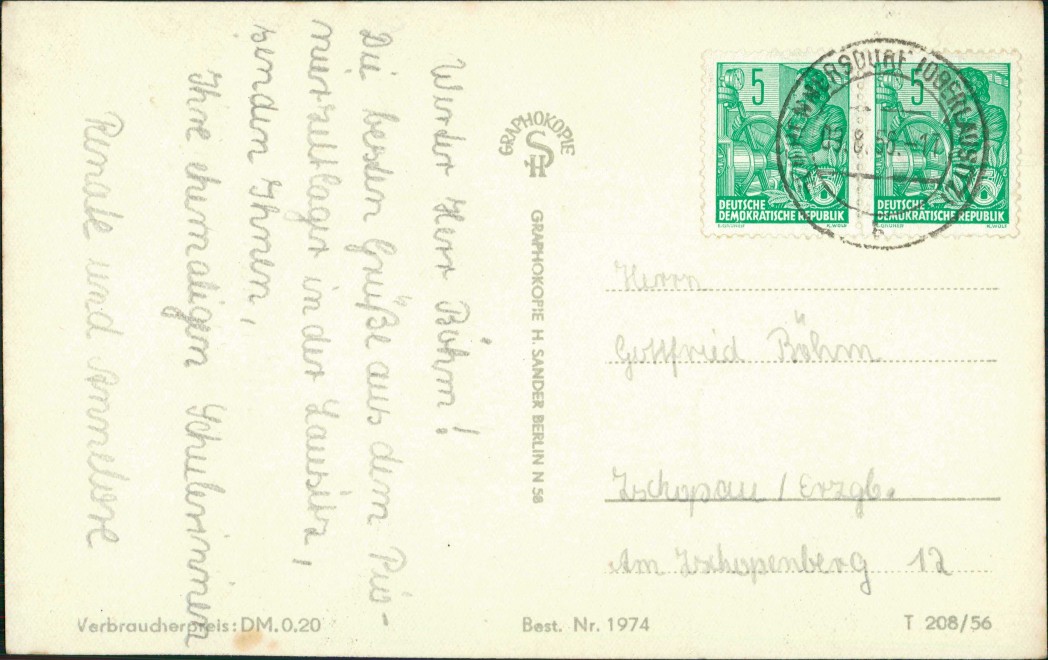 Werter Herr Böhm!
Die besten Grüße aus dem Pio-
nierzeltlager in der Lausitz,
senden Ihnen,
Ihre ehemaligen Schulerinnen
Renate und Annelore
GRAPHOKOPIE
SH
GRAPHOKOPIE H. SANDER BERLIN N 58
5
DEUTSCHE
DEMOKRATISCHE REPUBLIK
E.GRUNER K.WOLF
5
DEUTSCHE
DEMOKRATISCHE REPUBLIK
E.GRUNER K.WOLF
(OBERLAUSITZ)
Herrn
Gottfried Böhm
Zschopau / Erzgb.
Am Zschopenberg 12
Verbraucherpreis: DM.0.20
Best. Nr. 1974
T 208/56